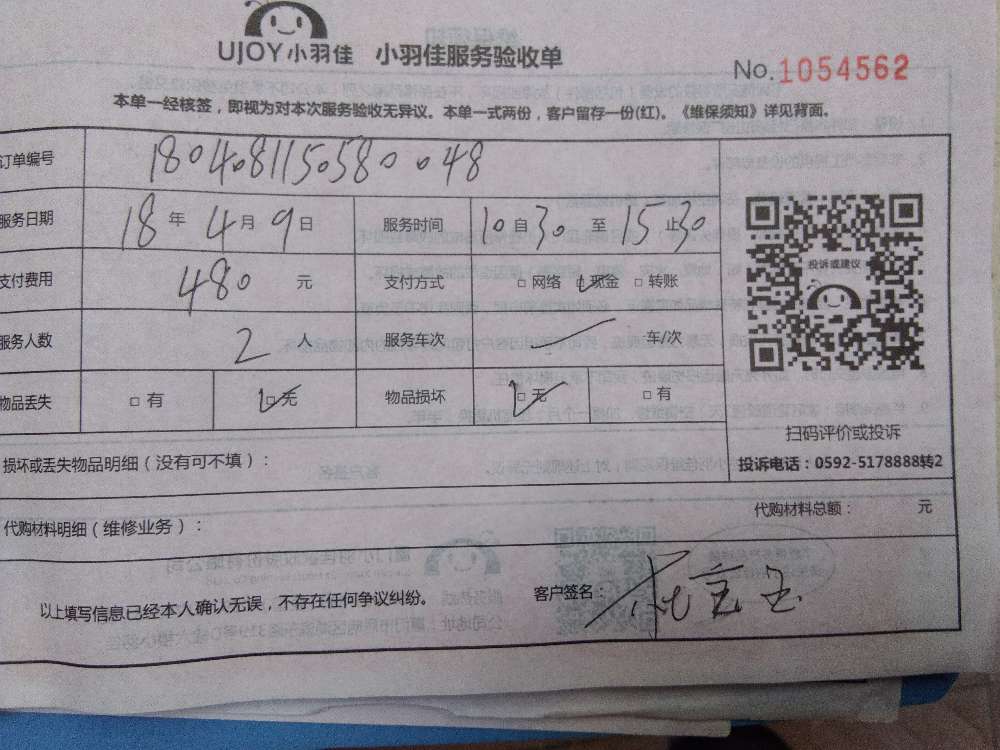 UJOY小羽佳 小羽佳服务验收单
No.1054562
本单一经核签，即视为对本次服务验收无异议。本单一式两份，客户留存一份(红)。《维保须知》详见背面。
订单编号 1804081150580048
服务日期 18年4月9日 服务时间 10自30至15止30
支付费用 480元 支付方式 □网络 □现金 □转账
服务人数 2人 服务车次 车/次
物品丢失 □有 □无 物品损坏 □无 □有
投诉或建议
扫码评价或投诉
投诉电话：0592-5178888转2
损坏或丢失物品明细（没有可不填）：
代购材料明细（维修业务）： 代购材料总额： 元
以上填写信息已经本人确认无误，不存在任何争议纠纷。 客户签名：